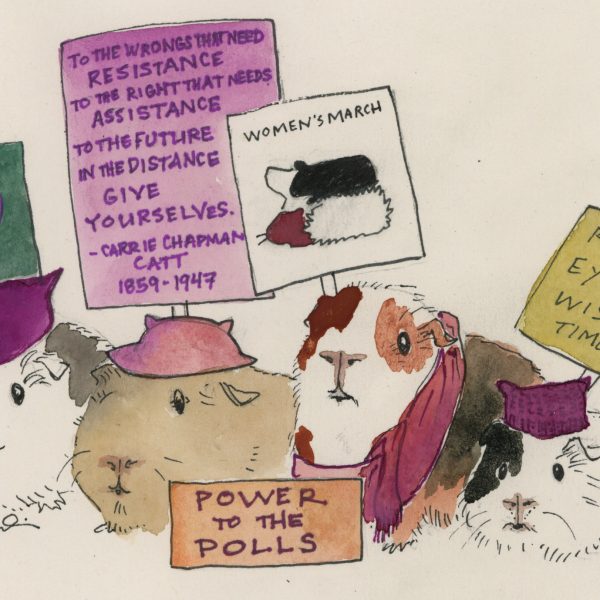 TO THE WRONGS THAT NEED
RESISTANCE
TO THE RIGHT THAT NEEDS
ASSISTANCE
TO THE FUTURE
IN THE DISTANCE
GIVE
YOURSELVES.
-CARRIE CHAPMAN
CATT
1859-1947
WOMEN'S MARCH
POWER
TO THE
POLLS